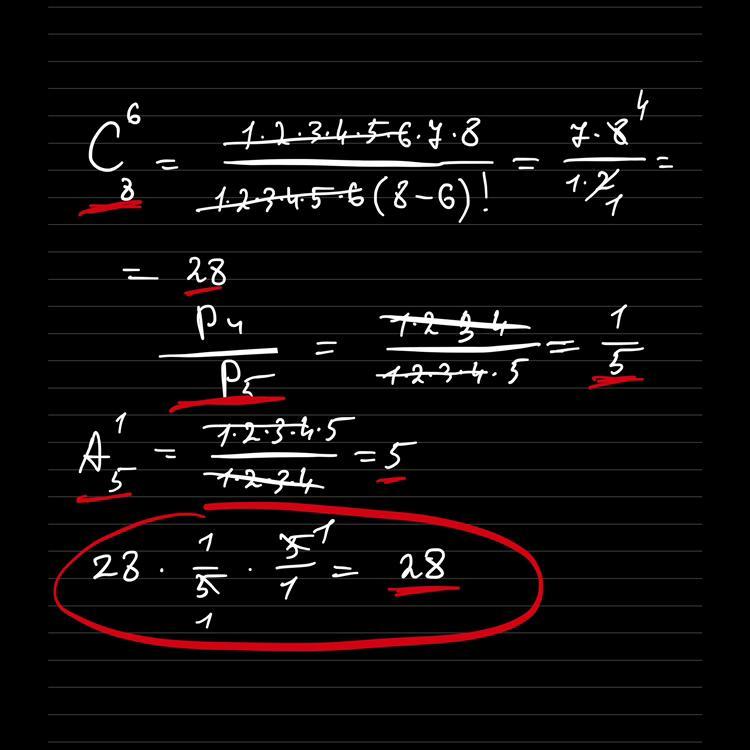 C₈⁶ = 1·2·3·4·5·6·7·8 / 1·2·3·4·5·6(8-6)! = 7·8 4 / 1·2 1 =
= 28
P₄ / P₅ = 1·2·3·4 / 1·2·3·4·5 = 1/5
A₅¹ = 1·2·3·4·5 / 1·2·3·4 = 5
28 · 1/5 1 · 5 1/1 = 28